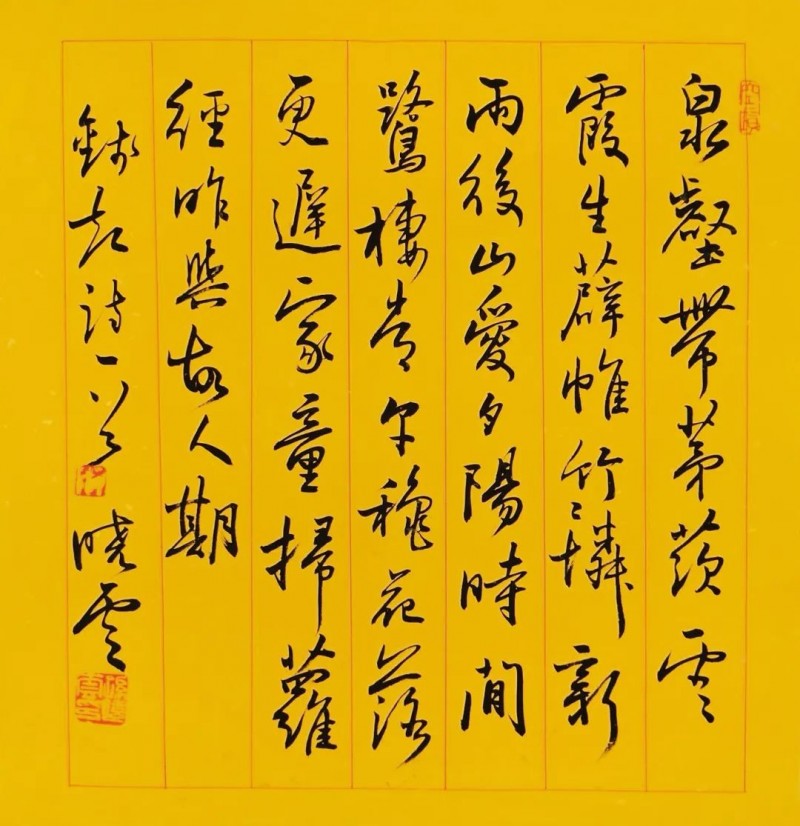 泉壑帶茅茨雲
霞生薜帷竹憐新
雨後山愛夕陽時閒
鷺棲常早穐花落
更遲家童掃蘿
徑昨與故人期
錢起詩一首 曉雲